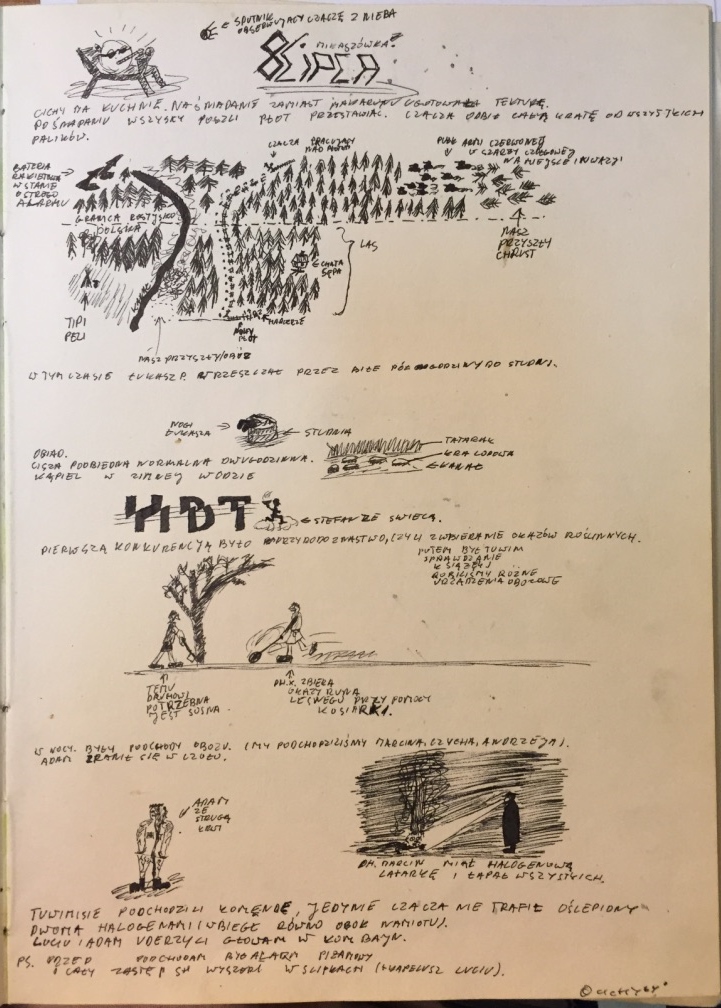 SPUTNIK
OBSERWUJĄCY CZACZĘ Z NIEBA
MIKASZÓWKA?
8 LIPCA
CICHY MA KUCHNIĘ. NA ŚNIADANIE ZAMIAST MAKARONU UGOTOWAŁ TEKTURĘ.
PO ŚNIADANIU WSZYSKY POSZLI PŁOT PRZESTAWIAĆ. CZACZA ODBIŁ CAŁĄ KRATĘ OD WSZYSTKICH
PALIKÓW.
BATERIA
RAKIETOWA
W STANIE
OSTREGO
ALARMU
CZACZA PRACUJĄCY
NAD PŁOTEM
PUŁK ARMI CZERWONEJ
W SZARŻY CZOŁGOWEJ
NA MIEJSCE INWAZJI
GRANICA ROSYJSKO
POLSKA
LAS
NASZ
PRZYSZŁY
CHRUST
CHATA
SĘPA
TIPI
PELI
NOWY
PŁOT
NASZ PRZYSZŁY OBÓZ
W TYM CZASIE ŁUKASZ P. WRZESZCZAŁ PRZEZ BITE PÓŁ GODZINY DO STUDNI.
NOGI
ŁUKASZA
STUDNIA
TATARAK
KRA LODOWA
KANAŁ
OBIAD.
CISZA POOBIEDNA NORMALNA DWUGODZINNA.
KĄPIEL W ZIMNEJ WODZIE
HDT
STEFAN ZE ŚWIECĄ.
PIERWSZĄ KONKURENCJĄ BYŁO PRZYRODOZNASTWO, CZYLI ZWBIERANIE OKAZÓW ROŚLINNYCH.
POTEM BYŁ TUWIM
SPRAWDZANIE
KSIĄŻEJ
ROBILIŚMY RÓŻNE
URZĄDZENIA OBOZOWE
TEMU
DRUHOWI
POTRZEBNA
JEST SOSNA.
DH. X. ZBIERA
OKAZY RUNA
LEŚNEGO PRZY POMOCY
KOSIARKI.
W NOCY. BYŁY PODCHODY OBOZU. (MY PODCHODZILIŚMY MARCINA, CZYCHA, ANDRZEJA).
ADAM ZRANIŁ SIĘ W CZOŁO.
ADAM
ZE
STRUGĄ
KRWI
DH. MARCIN MIAŁ HALOGENOWĄ
LATARKĘ I ŁAPAŁ WSZYSTKICH.
TUWIMISIE PODCHODZILI KOMENDĘ, JEDYNIE CZACZA NIE TRAFIŁ OŚLEPIONY
DWOMA HALOGENAMI (WBIEGŁ RÓWNO OBOK NAMIOTU).
LUCIU I ADAM UDERZYLI GŁOWAM W KOMBAJN.
PS. PRZED PODCHODAM BYŁ ALARM PIŻAMOWY
I CAŁY ZASTĘP SH WYSZEDŁ W SLIPKACH (+KAPELUSZ LUCIU).